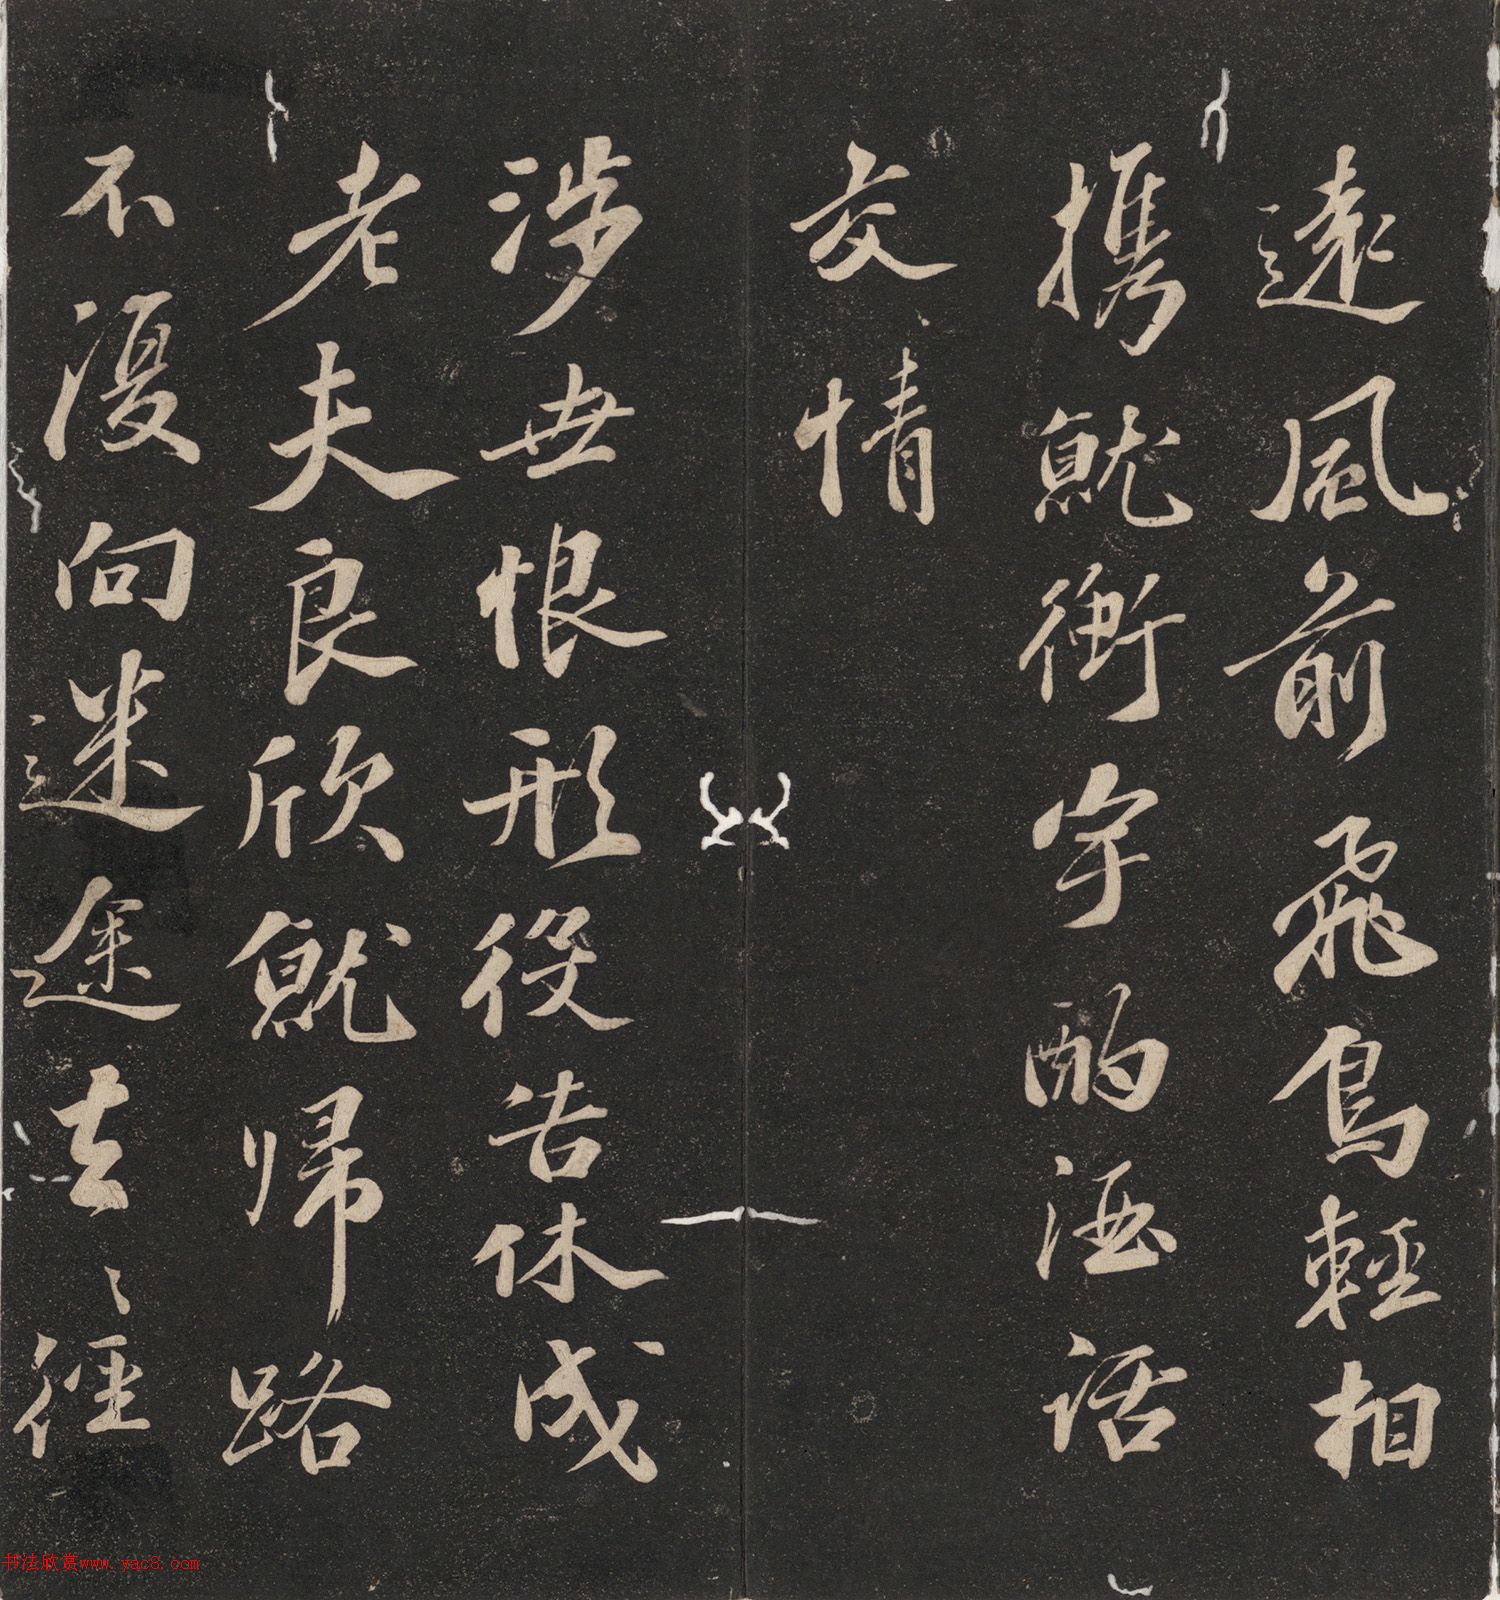 遠風前飛鳥輕相
攜就衡宇酌酒話
交情
涉世恨形役告休成
老夫良欣就帰路
不復向迷途去々徑
书法欣赏www.yac8.com